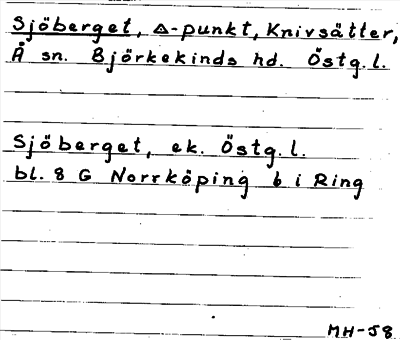 Sjöberget, △-punkt, Knivsätter,
Å sn. Björkekinds hd. Östg. l.
Sjöberget, ek. Östg. l.
bl. 8 G Norrköping 6 i Ring
MH-58